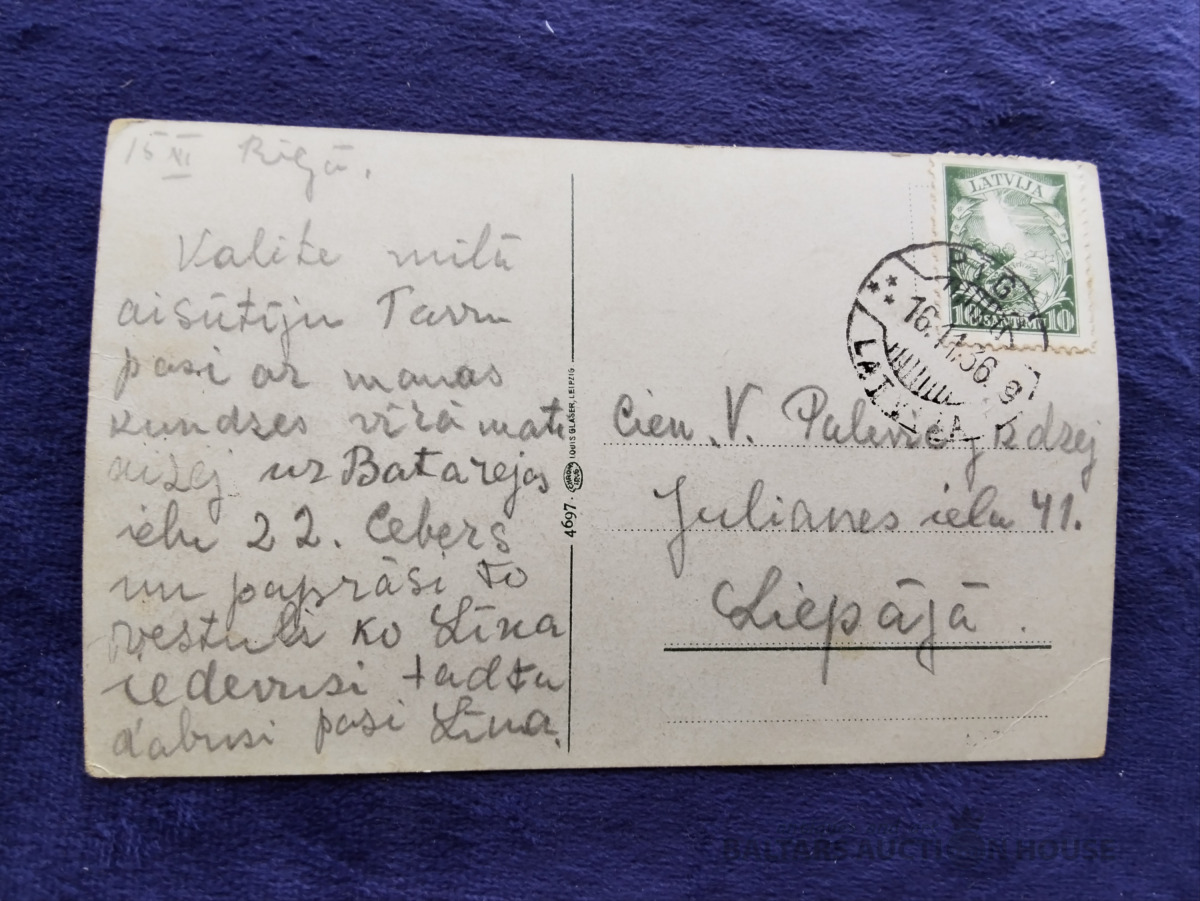 15 XI Rīgā.
Valike milā
aisūtīju Tavu
pasi ar manas
kundzes vīrā māti
aizej uz Batarejas
ielu 22. Cebers
un paprāsi to
vestuli ko Līna
iedevusi tad tu
dabusi pasi Līna.
4697. LOUIS GLASER, LEIPZIG.
LATVIJA
10 SANTIMU 10
RĪGA
16.11.36.
LATVIJA
Cien. V.
Julianes ielu 41.
Liepājā.
BALTARS AUCTION HOUSE